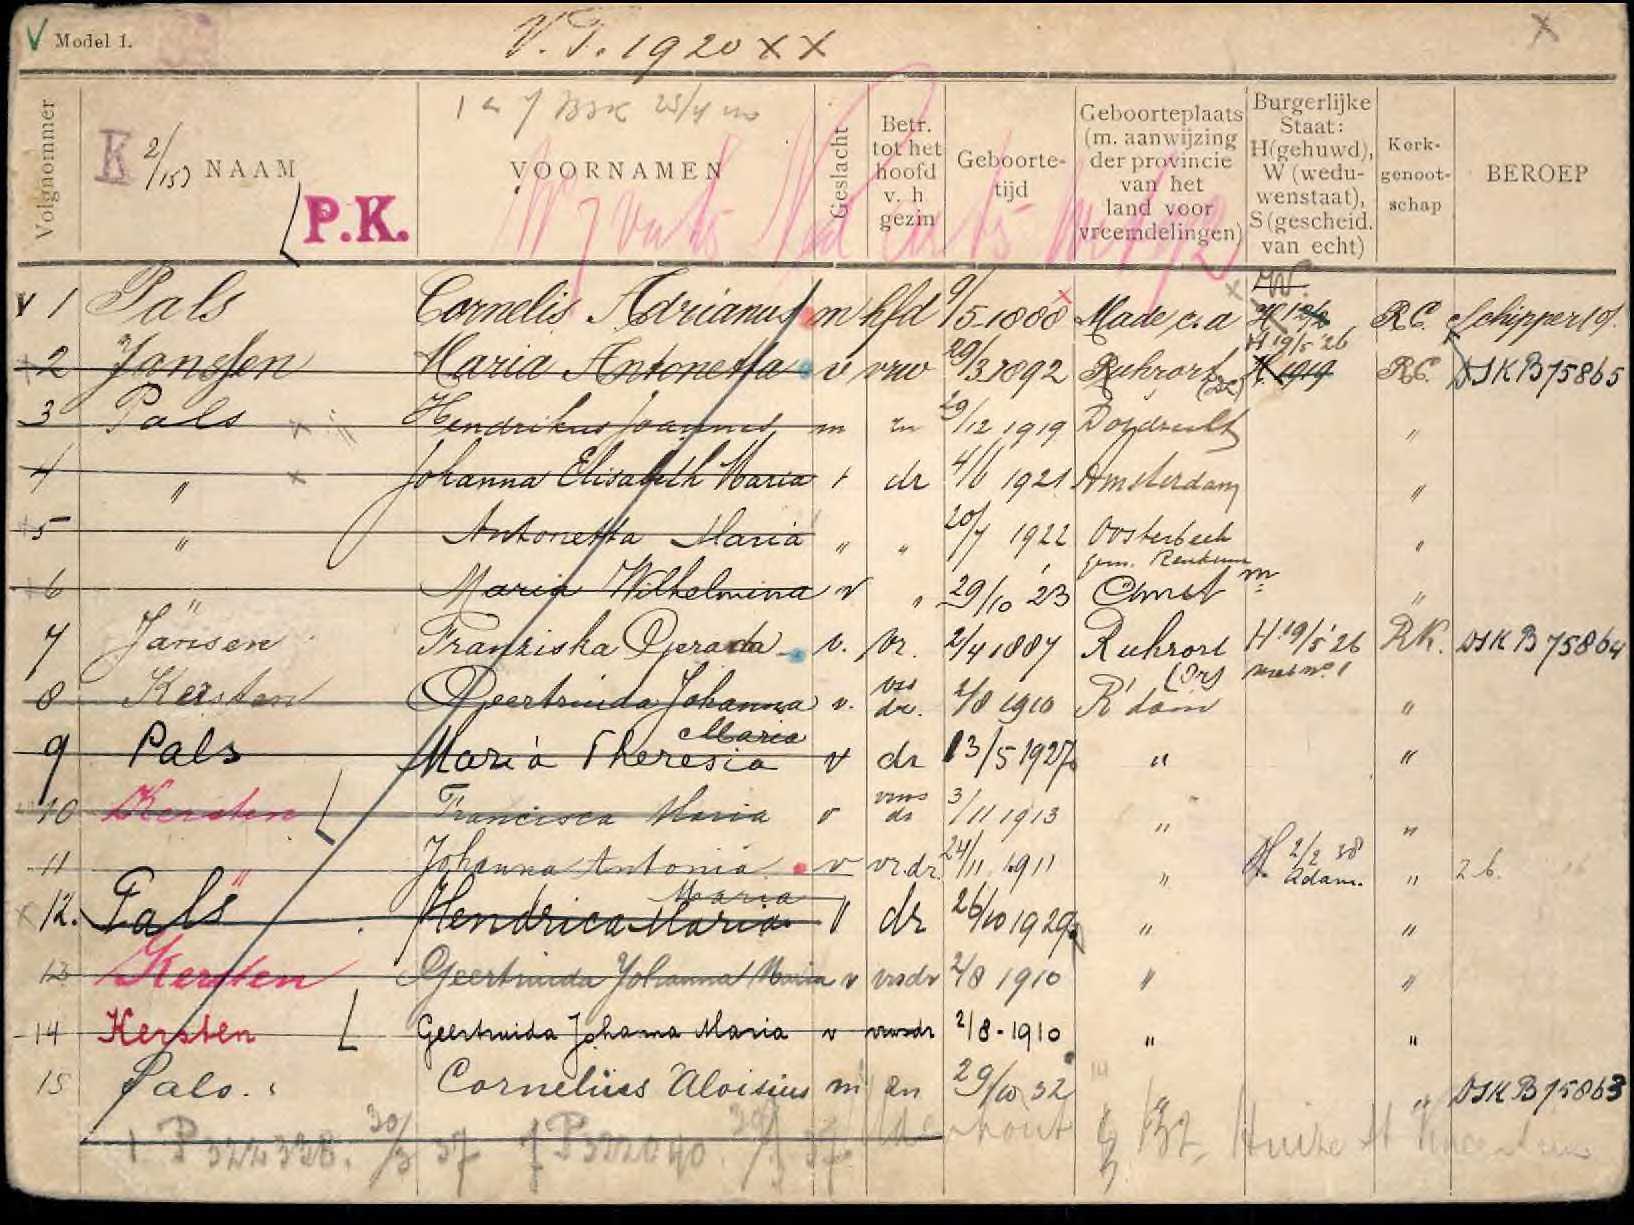 V Model 1. V.T. 1920 X X X
Volgnommer K 2/15) NAAM P.K. VOORNAMEN Geslacht Betr. tot het hoofd v. h gezin Geboorte-tijd Geboorteplaats (m. aanwijzing der provincie van het land voor vreemdelingen) Burgerlijke Staat: H(gehuwd), W (wedu-wenstaat), S (gescheid. van echt) Kerk-genoot-schap BEROEP
W.
V 1 Pals Cornelis Adrianus m hfd 9/5 1888 Made c.a R.C. Schipper
H 19/5 '26
2 Janssen Maria Antonetta v vrw 29/3 1892 Ruhrort H 1919 R.C. DSK B75865
3 Pals Hendrikus Joannes m zn 29/12 1919 Dordrecht "
4 " Johanna Elisabeth Maria dr 4/6 1921 Amsterdam "
5 " Antonetta Maria " " 20/7 1922 Oosterbeek "
gem. Renkum
6 " Maria Wilhelmina v " 29/10 '23 "
7 Jansen Franziska Gerarda v. vr. 2/4 1887 Ruhrort H 19/5 '26 R.K. DSK B75864
met no. 1
8 Kersten Geertruida Johanna v. dr. 2/8 1910 R'dam "
Maria
9 Pals Maria Theresia v dr 13/5 1927 " "
10 Kersten Francisca Maria v dr 3/11 1913 " "
11 " Johanna Antonia v vr.dr. 24/11 1911 " H 2/2 38 Adam. " 26.
Maria
12. Pals Hendrica Maria v dr 26/10 1929 " "
13 Kersten Geertruida Johanna Maria v vrsdr 2/8 1910 " "
14 Kersten Geertruida Johanna Maria v vrwsdr 2/8 - 1910 " "
15 Pals. Cornelius Aloisius m zn 29/10 32 " " DSK B75863
1 P322328. 30/3 37 7 P322040 37 Huize St